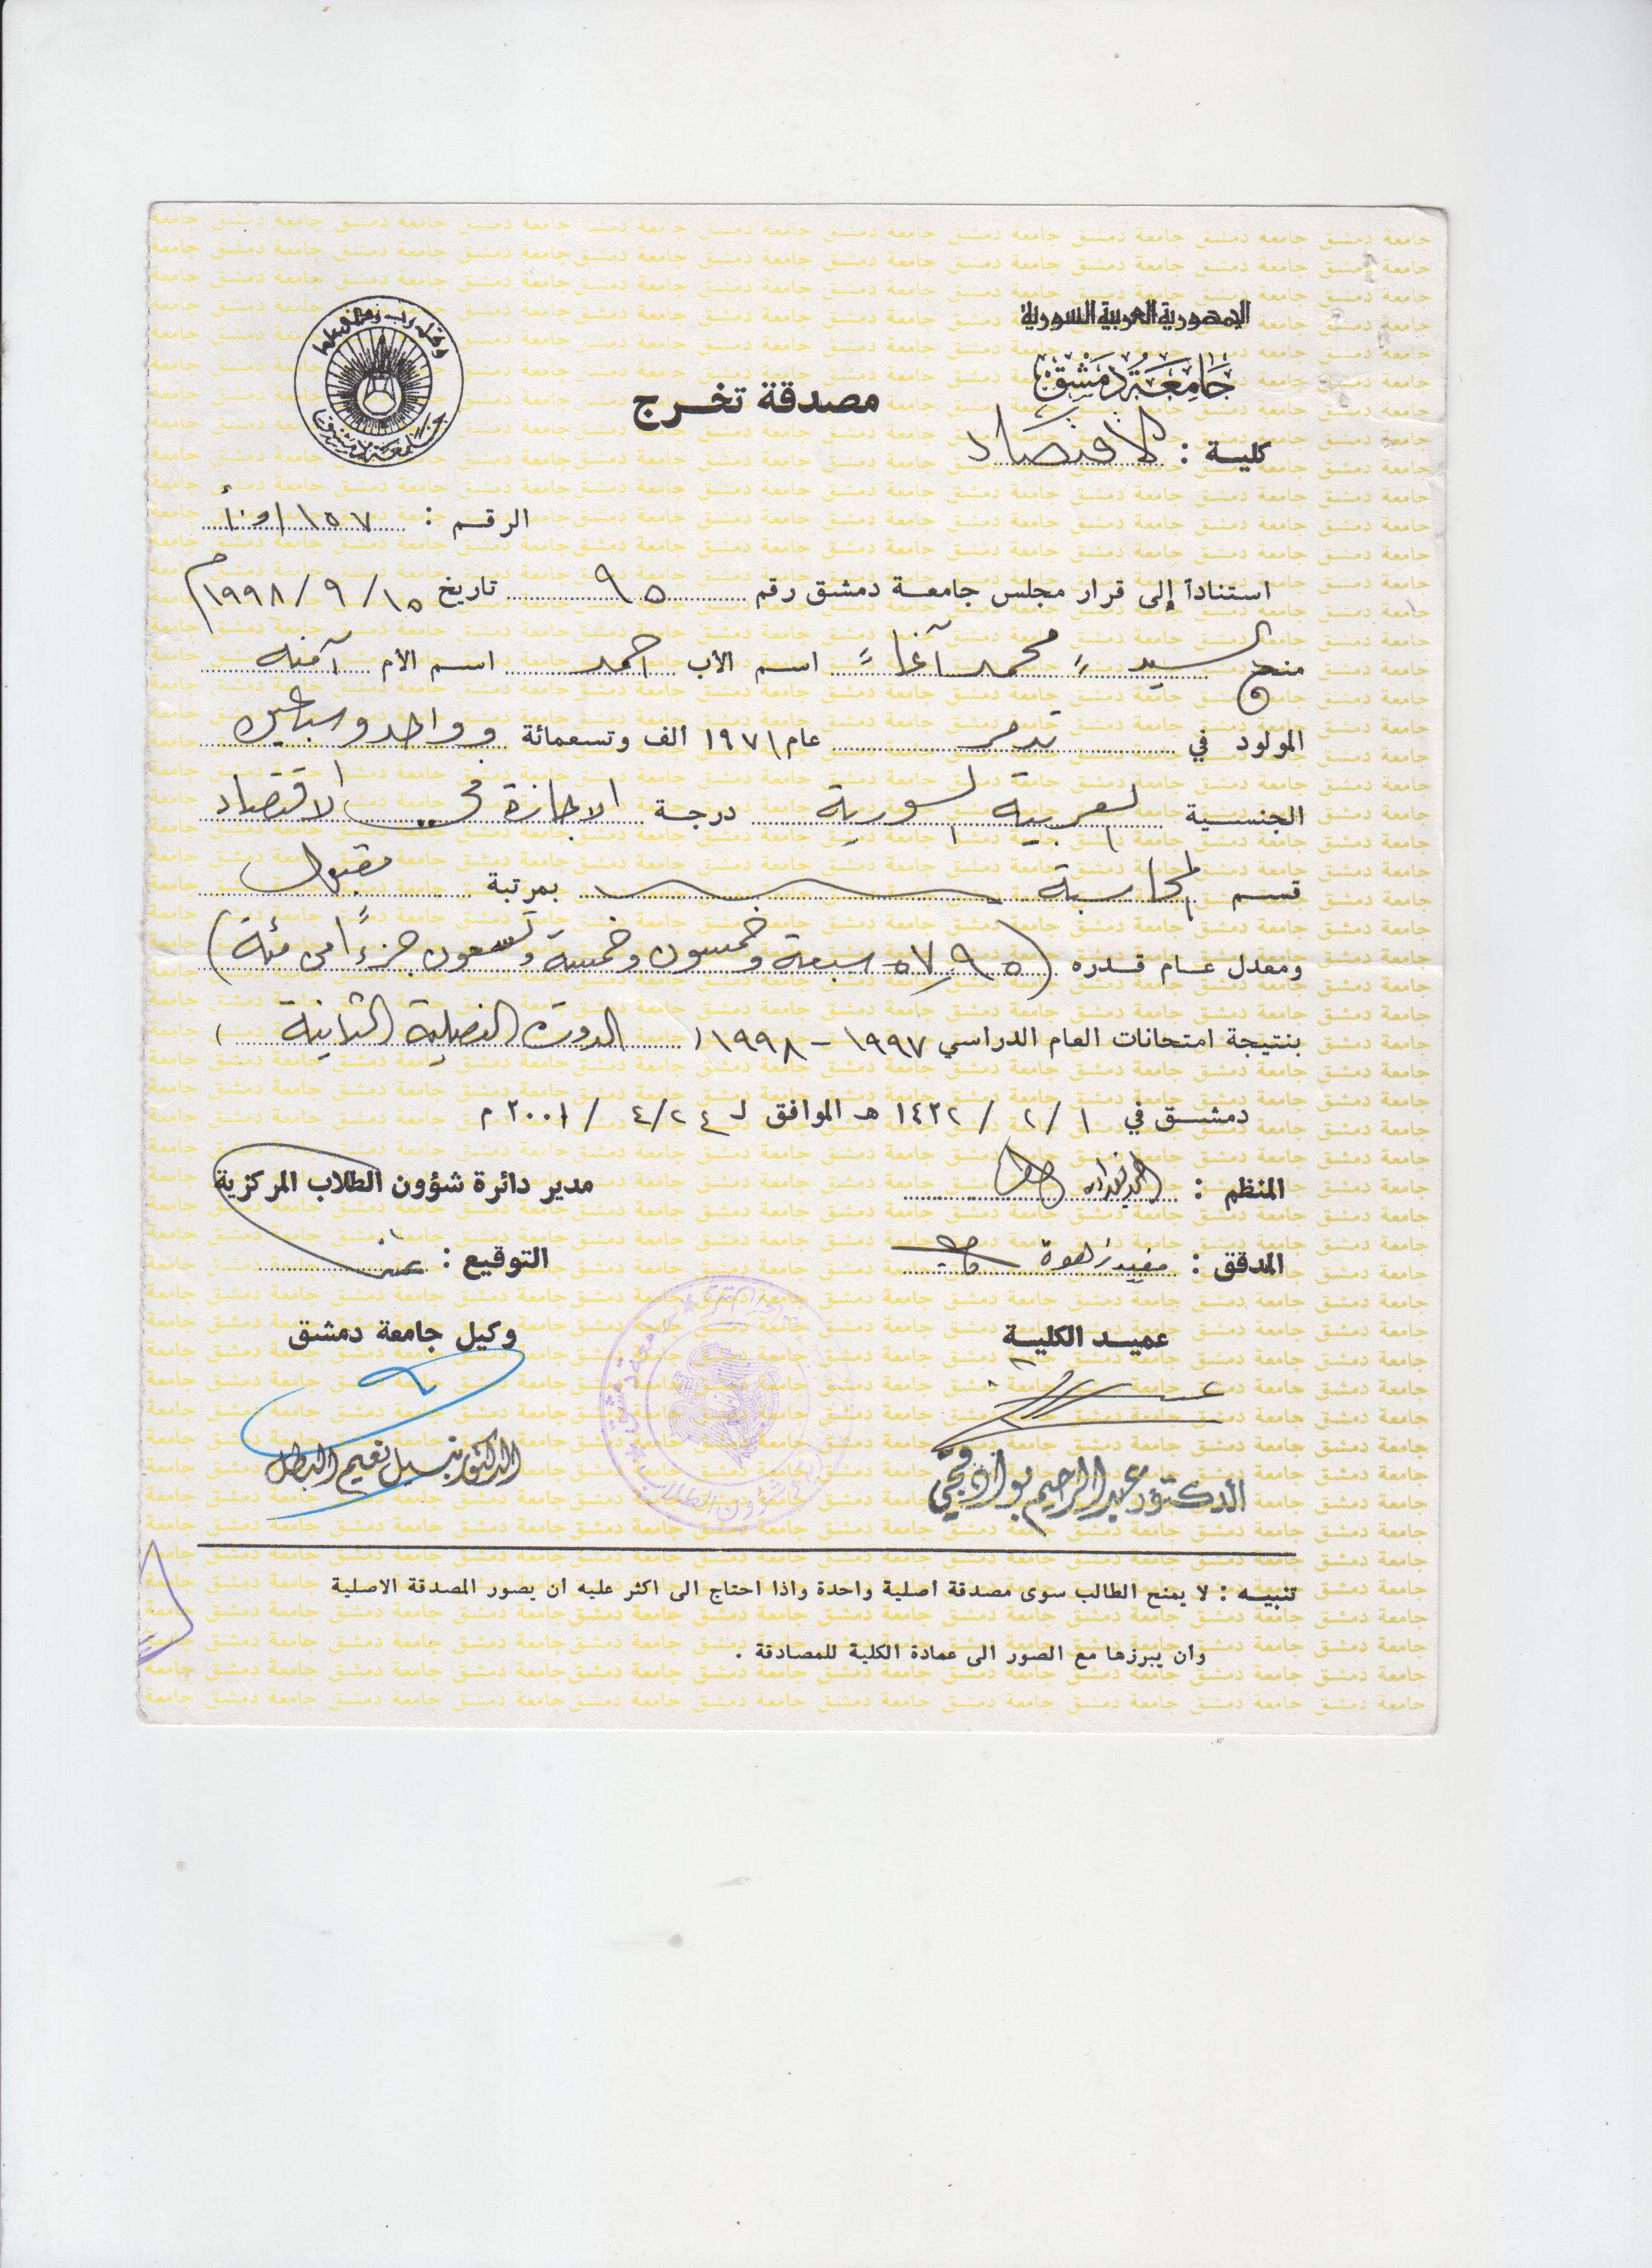 الجمهورية العربية السورية
جامعة دمشق
مصدقة تخرج
كلية : الاقتصاد
وقل رب زدني علما
جامعة دمشق
الرقم : ١٥٧/و.أ
استناداً إلى قرار مجلس جامعة دمشق رقم ٩٥ تاريخ ١٥/٩/١٩٩٨م
منح السيد " محمد آغا " اسم الأب احمد اسم الأم آمنه
المولود في تدمر عام ١٩٧١ الف وتسعمائة و واحد وسبعين
الجنسية العربية السورية درجة الاجازة في الاقتصاد
قسم المحاسبة بمرتبة مقبول
ومعدل عام قدره ( ٥٧,٩٥ سبعة وخمسون وخمسة وتسعون جزءاً من مئة )
بنتيجة امتحانات العام الدراسي ١٩٩٧ - ١٩٩٨ ( الدورة الفصلية الثانية )
دمشق في ١ / ٢ / ١٤٢٢ هـ الموافق لـ ٢٤ / ٤ / ٢٠٠١ م
المنظم :
مدير دائرة شؤون الطلاب المركزية
المدقق : مفيد زهوة
التوقيع :
عميد الكلية
وكيل جامعة دمشق
الدكتور عبد الرحيم بوادقجي
الدكتور نبيل نعيم البطل
تنبيه : لا يمنح الطالب سوى مصدقة اصلية واحدة واذا احتاج الى اكثر عليه ان يصور المصدقة الاصلية
وان يبرزها مع الصور الى عمادة الكلية للمصادقة .